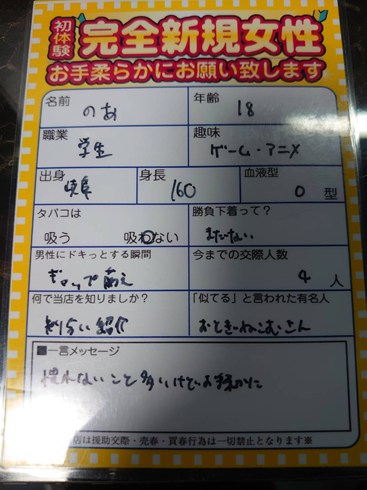 初体験 完全新規女性
お手柔らかにお願い致します
名前 のあ 年齢 18
職業 学生 趣味 ゲーム・アニメ
出身 岐阜 身長 160 血液型 O 型
タバコは 吸う 吸わない 勝負下着って? まだない
男性にドキっとする瞬間 ギャップ萌え 今までの交際人数 4 人
何で当店を知りましたか? 知り合い紹介 「似てる」と言われた有名人
■一言メッセージ
慣れないこと多いけどお手柔かに
店は援助交際・売春・買春行為は一切禁止となります※